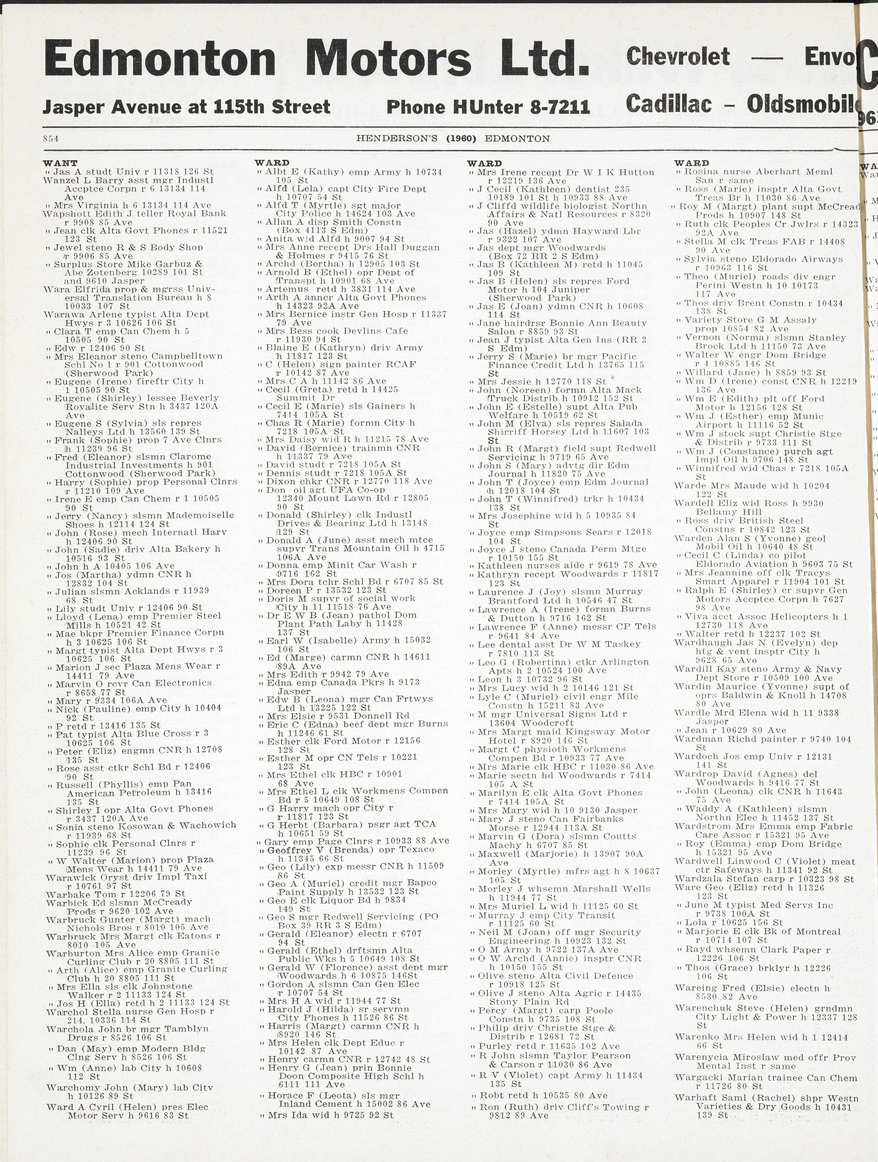 Edmonton Motors Ltd.
Chevrolet — Envo
Jasper Avenue at 115th Street
Phone HUnter 8-7211
Cadillac – Oldsmobile
854
HENDERSON'S (1960) EDMONTON
WANT
" Jas A studt Univ r 11318 126 St
Wanzel L Barry asst mgr Industl
Accptce Corpn r 6 13134 114
Ave
" Mrs Virginia h 6 13134 114 Ave
Wapshott Edith J teller Royal Bank
r 9908 85 Ave
" Jean clk Alta Govt Phones r 11521
123 St
" Jewel steno R & S Body Shop
r 9906 85 Ave
" Surplus Store Mike Garbuz &
Abe Zotenberg 10289 101 St
and 9610 Jasper
Wara Elfrida prop & mgrss Univ-
ersal Translation Bureau h 8
10033 107 St
Warawa Arlene typist Alta Dept
Hwys r 3 10626 106 St
" Clara T emp Can Chem h 5
10505 90 St
" Edw r 12406 90 St
" Mrs Eleanor steno Campbelltown
Schl No 1 r 901 Cottonwood
(Sherwood Park)
" Eugene (Irene) fireftr City h
1 10505 90 St
" Eugene (Shirley) lessee Beverly
Royalite Serv Stn h 3437 120A
Ave
" Eugene S (Sylvia) sls repres
Nalleys Ltd h 13560 139 St
" Frank (Sophie) prop 7 Ave Clnrs
h 11239 96 St
" Fred (Eleanor) slsmn Clarome
Industrial Investments h 901
Cottonwood (Sherwood Park)
" Harry (Sophie) prop Personal Clnrs
r 11210 109 Ave
" Irene E emp Can Chem r 1 10505
90 St
" Jerry (Nancy) slsmn Mademoiselle
Shoes h 12114 124 St
" John (Rose) mech Internatl Harv
h 12406 90 St
" John (Sadie) driv Alta Bakery h
10516 93 St
" John h A 10405 106 Ave
" Jos (Martha) ydmn CNR h
12832 104 St
" Julian slsmn Acklands r 11939
68 St
" Lily studt Univ r 12406 90 St
" Lloyd (Lena) emp Premier Steel
Mills h 10521 42 St
" Mae bkpr Premier Finance Corpn
h 3 10625 106 St
" Margt typist Alta Dept Hwys r 3
10625 106 St
" Marion J sec Plaza Mens Wear r
14411 79 Ave
" Marvin O rcvr Can Electronics
r 8658 77 St
" Mary r 9334 106A Ave
" Nick (Pauline) emp City h 10404
92 St
" P retd r 13416 135 St
" Pat typist Alta Blue Cross r 3
10625 106 St
" Peter (Eliz) engmn CNR h 12708
135 St
" Rose asst ctkr Schl Bd r 12406
90 St
" Russell (Phyllis) emp Pan
American Petroleum h 13416
135 St
" Shirley I opr Alta Govt Phones
r 3437 120A Ave
" Sonia steno Kosowan & Wachowich
r 11939 68 St
" Sophie clk Personal Clnrs r
11239 96 St
" W Walter (Marion) prop Plaza
Mens Wear h 14411 79 Ave
Warawick Oryst driv Impl Taxi
r 10761 97 St
Warbake Tom r 12206 79 St
Warbick Ed slsmn McCready
Prods r 9620 102 Ave
Warbruck Gunter (Margt) mach
Nichols Bros r 8010 105 Ave
Warbruck Mrs Margt clk Eatons r
8010 105 Ave
Warburton Mrs Alice emp Granite
Curling Club r 20 8805 111 St
" Arth (Alice) emp Granite Curling
Club h 20 8805 111 St
" Mrs Ella sls clk Johnstone
Walker r 2 11133 124 St
" Jos H (Ella) retd h 2 11133 124 St
Warchol Stella nurse Gen Hosp r
214, 10336 114 St
Warchola John br mgr Tamblyn
Drugs r 8526 106 St
" Dan (May) emp Modern Bldg
Clng Serv h 8526 106 St
" Wm (Anne) lab City h 10608
112 St
Warchomy John (Mary) lab City
h 10126 89 St
Ward A Cyril (Helen) pres Elec
Motor Serv h 9616 83 St
WARD
" Albt E (Kathy) emp Army h 10734
105 St
" Alfd (Lela) capt City Fire Dept
h 10707 54 St
" Alfd T (Myrtle) sgt major
City Police h 14624 103 Ave
" Allan A disp Smith Constn
(Box 4113 S Edm)
" Anita wid Alfd h 9007 94 St
" Mrs Anne recpt Drs Hall Duggan
& Holmes r 9415 76 St
" Archd (Bertha) h 12905 103 St
" Arnold B (Ethel) opr Dept of
Transpt h 10901 68 Ave
" Artemus retd h 3831 114 Ave
" Arth A anncr Alta Govt Phones
h 14323 92A Ave
" Mrs Bernice instr Gen Hosp r 11337
79 Ave
" Mrs Bess cook Devlins Cafe
r 11930 94 St
" Blaine E (Kathryn) driv Army
h 11817 123 St
" C (Helen) sign painter RCAF
r 10142 87 Ave
" Mrs C A h 11142 86 Ave
" Cecil (Greta) retd h 14425
Summit Dr
" Cecil E (Marie) sls Gainers h
7414 105A St
" Chas R (Marie) formn City h
7218 105A St
" Mrs Daisy wid R h 11215 78 Ave
" David (Bernice) trainmn CNR
h 11337 79 Ave
" David studt r 7218 105A St
" Dennis studt r 7218 105A St
" Dixon chkr CNR r 12770 118 Ave
" Don oil agt UFA Co-op
12340 Mount Lawn Rd r 12805
90 St
" Donald (Shirley) clk Industl
Drives & Bearing Ltd h 13148
129 St
" Donald A (June) asst mech mtce
supvr Trans Mountain Oil h 4715
106A Ave
" Donna emp Minit Car Wash r
9716 162 St
" Mrs Dora tchr Schl Bd r 6707 85 St
" Doreen P r 13532 123 St
" Doris M supvr of social work
City h 11 11518 76 Ave
" Dr E W B (Jean) pathol Dom
Plant Path Laby h 11428
137 St
" Earl W (Isabelle) Army h 15032
106 St
" Ed (Marge) carmn CNR h 14611
89A Ave
" Mrs Edith r 9942 79 Ave
" Edna emp Canada Pkrs h 9173
Jasper
" Edw B (Leona) mgr Can Frtwys
Ltd h 13225 122 St
" Mrs Elsie r 9531 Donnell Rd
" Eric C (Edna) beef dept mgr Burns
h 11246 61 St
" Esther clk Ford Motor r 12156
128 St
" Esther M opr CN Tels r 10221
123 St
" Mrs Ethel clk HBC r 10901
68 Ave
" Mrs Ethel L clk Workmens Compen
Bd r 5 10649 108 St
" G Harry mach opr City r
r 11817 123 St
" G Herbt (Barbara) psgr agt TCA
h 10651 59 St
" Gary emp Page Clnrs r 10938 88 Ave
" Geoffrey V (Brenda) opr Texaco
h 11345 66 St
" Geo (Lily) exp messr CNR h 11509
86 St
" Geo A (Muriel) credit mgr Bapco
Paint Supply h 13532 123 St
" Geo E clk Liquor Bd h 9834
149 St
" Geo S mgr Redwell Servicing (PO
Box 39 RR 3 S Edm)
" Gerald (Eleanor) electn r 6707
94 St
" Gerald (Ethel) drftsmn Alta
Public Wks h 5 10649 108 St
" Gerald W (Florence) asst dept mgr
Woodwards h 6 10875 146St
" Gordon A slsmn Can Gen Elec
r 10707 54 St
" Mrs H A wid r 11944 77 St
" Harold J (Hilda) sr servmn
City Phones h 11526 86 St
" Harris (Margt) carmn CNR h
8920 146 St
" Mrs Helen clk Dept Educ r
10142 87 Ave
" Henry carmn CNR h 12742 48 St
" Henry G (Jean) prin Bonnie
Doon Composite High Schl h
6111 111 Ave
" Horace F (Leota) sls mgr
Inland Cement h 15002 86 Ave
" Mrs Ida wid h 9725 92 St
WARD
" Mrs Irene recpt Dr W I K Hutton
r 12219 136 Ave
" J Cecil (Kathleen) dentist 235
10189 101 St h 10933 88 Ave
" J Cliffd wildlife biologist Northn
Affairs & Natl Resources r 8320
90 Ave
" Jas (Hazel) ydmn Hayward Lbr
r 9322 107 Ave
" Jas dept mgr Woodwards
(Box 72 RR 2 S Edm)
" Jas B (Kathleen M) retd h 11045
109 St
" Jas B (Helen) sls repres Ford
Motor h 104 Juniper
(Sherwood Park)
" Jas E (Joan) ydmn CNR h 10608
114 St
" Jane hairdrsr Bonnie Ann Beauty
Salon r 8859 93 St
" Jean J typist Alta Gen Ins (RR 2
S Edm)
" Jerry S (Marie) br mgr Pacific
Finance Credit Ltd h 13765 115
St
" Mrs Jessie h 12770 118 St
" John (Noreen) formn Alta Mack
Truck Distrib h 10912 152 St
" John E (Estelle) supt Alta Pub
Welfare h 10519 62 St
" John M (Elva) sls repres Salada
Shirriff Horsey Ltd h 11607 103
St
" John R (Margt) field supt Redwell
Servicing h 9719 65 Ave
" John S (Mary) advtg dir Edm
Journal h 11820 75 Ave
" John T (Joyce) emp Edm Journal
h 12018 104 St
" John T (Winnifred) trkr h 10434
138 St
" Mrs Josephine wid h 5 10935 84
St
" Joyce emp Simpsons Sears r 12018
104 St
" Joyce J steno Canada Perm Mtge
r 10150 155 St
" Kathleen nurses aide r 9619 78 Ave
" Kathryn recpt Woodwards r 11817
123 St
" Laurence J (Joy) slsmn Murray
Brantford Ltd h 10546 47 St
" Lawrence A (Irene) formn Burns
& Dutton h 9716 162 St
" Lawrence F (Anne) messr CP Tels
r 9641 84 Ave
" Lee dental asst Dr W M Taskey
r 7810 113 St
" Leo G (Robertina) ctkr Arlington
Apts h 2 10524 100 Ave
" Leon h 3 10732 96 St
" Mrs Lucy wid h 2 10146 121 St
" Lyle C (Muriel) civil engr Mile
Constn h 15211 83 Ave
" M mgr Universal Signs Ltd r
13604 Woodcroft
" Mrs Margt maid Kingsway Motor
Hotel r 8920 146 St
" Margt C physioth Workmens
Compen Bd r 10933 77 Ave
" Mrs Marie clk HBC r 11030 86 Ave
" Marie sectn hd Woodwards r 7414
105 A St
" Marilyn E clk Alta Govt Phones
r 7414 105A St
" Mrs Mary wid h 10 9130 Jasper
" Mary J steno Can Fairbanks
Morse r 12944 113A St
" Marvin G (Dora) slsmn Coutts
Machy h 6707 85 St
" Maxwell (Marjorie) h 13907 90A
Ave
" Morley (Myrtle) mfrs agt h 8 10637
105 St
" Morley J whsemn Marshall Wells
h 11944 77 St
" Mrs Muriel L wid h 11125 60 St
" Murray J emp City Transit
r 11125 60 St
" Neil M (Joan) off mgr Security
Engineering h 10923 132 St
" O M Army h 9722 137A Ave
" O W Archd (Annie) insptr CNR
h 10150 155 St
" Olive steno Alta Civil Defence
r 10918 125 St
" Olive J steno Alta Agric r 14435
Stony Plain Rd
" Percy (Margt) carp Poole
Constn h 9735 108 St
" Philip driv Christie Stge &
Distrib r 12681 72 St
" Purley retd r 11635 102 Ave
" R John slsmn Taylor Pearson
& Carson r 11030 86 Ave
" R V (Violet) capt Army h 11434
135 St
" Robt retd h 10535 80 Ave
" Ron (Ruth) driv Cliff's Towing r
9812 89 Ave
WARD
" Rosina nurse Aberhart Meml
San r same
" Ross (Marie) insptr Alta Govt
Treas Br h 11030 86 Ave
" Roy M (Margt) plant supt McCread
Prods h 10907 148 St
" Ruth clk Peoples Cr Jwlrs r 14323
92A Ave
" Stella M clk Treas FAB r 14408
90 Ave
" Sylvia steno Eldorado Airways
r 10963 116 St
" Theo (Muriel) roads div engr
Perini Westn h 10 10173
117 Ave
" Thos driv Brent Constn r 10434
138 St
" Variety Store G M Assaly
prop 10854 82 Ave
" Vernon (Norma) slsmn Stanley
Brock Ltd h 11150 73 Ave
" Walter W engr Dom Bridge
r 4 10885 146 St
" Willard (Jane) h 8859 93 St
" Wm D (Irene) const CNR h 12219
136 Ave
" Wm E (Edith) plt off Ford
Motor h 12156 128 St
" Wm J (Esther) emp Munic
Airport h 11116 52 St
" Wm J stock supt Christie Stge
& Distrib r 9733 111 St
" Wm J (Constance) purch agt
Impl Oil h 9706 148 St
" Winnifred wid Chas r 7218 105A
St
Warde Mrs Maude h 10204
122 St
Wardell Eliz wid Ross h 9930
Bellamy Hill
" Ross driv British Steel
Constns r 10842 123 St
Warden Alan S (Yvonne) geol
Mobil Oil h 10640 48 St
" Cecil C (Linda) co pilot
Eldorado Aviation h 9603 75 St
" Mrs Jeannine off clk Tracys
Smart Apparel r 11904 101 St
" Ralph E (Shirley) cr supvr Gen
Motors Accptce Corpn h 7627
98 Ave
" Viva acct Assoc Helicopters h 1
12730 118 Ave
" Walter retd h 12237 102 St
Wardhaugh Jas N (Evelyn) dep
htg & vent insptr City h
9628 65 Ave
Wardill Kay steno Army & Navy
Dept Store r 10509 100 Ave
Wardin Maurice (Yvonne) supt of
oprs Baldwin & Knoll h 14708
80 Ave
Wardle Mrd Elena wid h 11 9338
Jasper
" Jean r 10629 80 Ave
Wardman Richd painter r 9740 104
St
Wardoch Jos emp Univ r 12131
141 St
Wardrop David (Agnes) del
Woodwards h 9416 77 St
" John (Leona) clk CNR h 11643
75 Ave
" Waddy A (Kathleen) slsmn
Northn Elec h 11452 137 St
Wardstrom Mrs Emma emp Fabric
Care Assoc r 15321 95 Ave
" Roy (Emma) emp Dom Bridge
h 15321 95 Ave
Wardwell Linwood C (Violet) meat
ctr Safeways h 11341 92 St
Wardzala Stefan carp r 10323 98 St
Ware Geo (Eliz) retd h 11326
123 St
" June M typist Med Servs Inc
r 9738 100A St
" Lola r 10625 156 St
" Marjorie E clk Bk of Montreal
r 10714 107 St
" Rayd whsemn Clark Paper r
12226 106 St
" Thos (Grace) brklyr h 12226
106 St
Wareing Fred (Elsie) electn h
8530 82 Ave
Warenchuk Steve (Helen) grndmn
City Light & Power h 12337 128
St
Warenko Mrs Helen wid h 1 12414
66 St
Warenycia Miroslaw med offr Prov
Mental Inst r same
Wargacki Marian trainee Can Chem
r 11726 80 St
Warhaft Saml (Rachel) shpr Westn
Varieties & Dry Goods h 10431
139 St